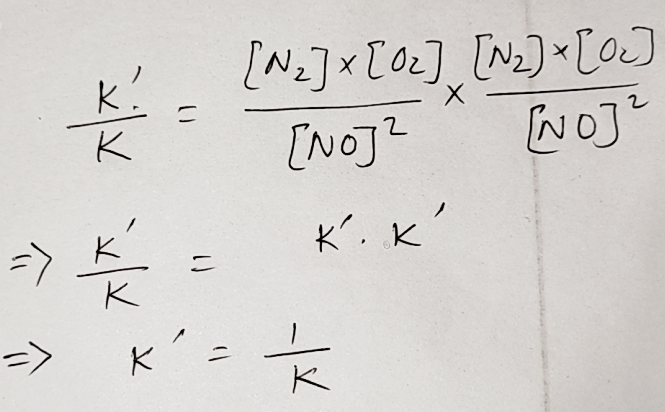 K'/K = [N₂]×[O₂]/[NO]² × [N₂]×[O₂]/[NO]²
=> K'/K = K'. K'
=> K' = 1/K